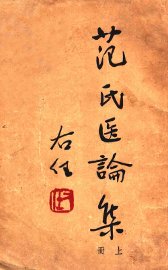 范氏医論集
右任
上冊